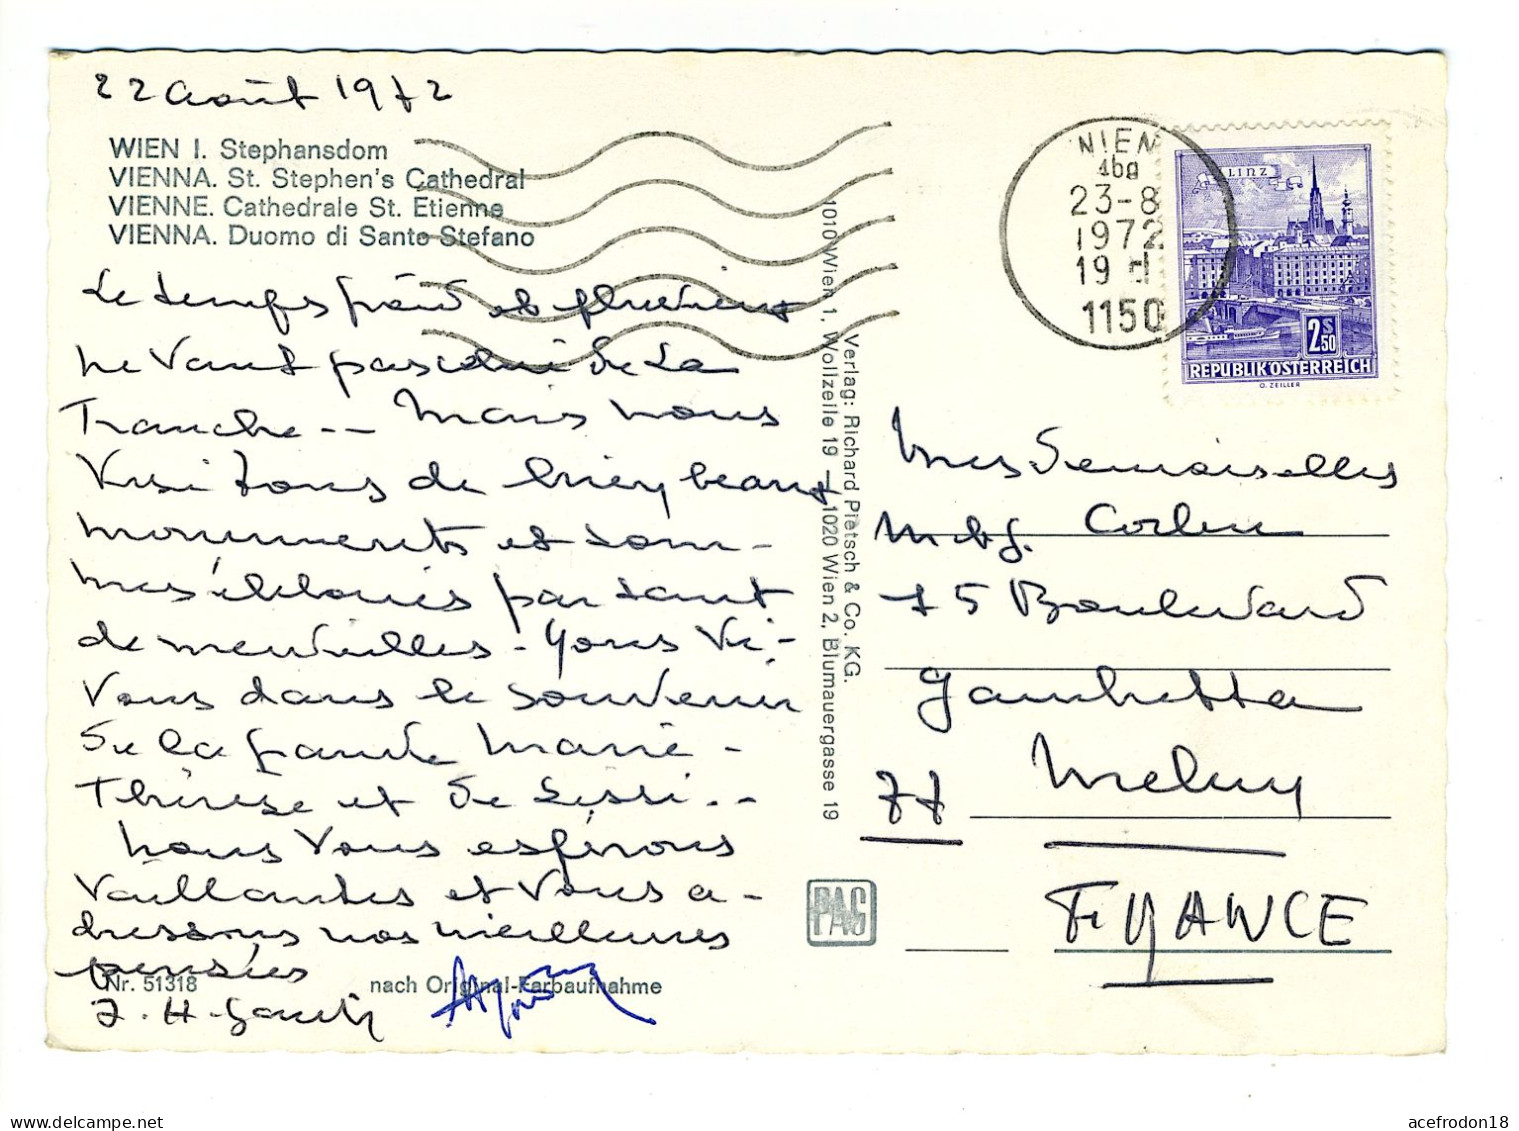 22 août 1972
WIEN I. Stephansdom
VIENNA. St. Stephen's Cathedral
VIENNE. Cathedrale St. Etienne
VIENNA. Duomo di Santo Stefano
Le temps froid et pluvieux
ne vaut pas celui de la
Franche -- Mais nous
visitons de biens beaux
monuments et som-
mes éblouis par tant
de merveilles - Nous vi-
vons dans le souvenir
de la grande Marie-
Thérèse et de Sissi . --
Nous vous espérons
vaillantes et vous a-
dressons nos meilleures
pensées
Nr. 51318 nach Original-Farbaufnahme
J. H.
Verlag: Richard Pietsch & Co. KG.
1010 Wien 1, Wollzeile 19 — 1020 Wien 2, Blumauergasse 19
PAG
WIEN
23-8
1972
19
1150
LINZ
2 S 50
REPUBLIK ÖSTERREICH
O. ZEILLER
Mesdemoiselles
M. et G.
15 Boulevard
Gambetta
77 Melun
FRANCE
acefrodon18